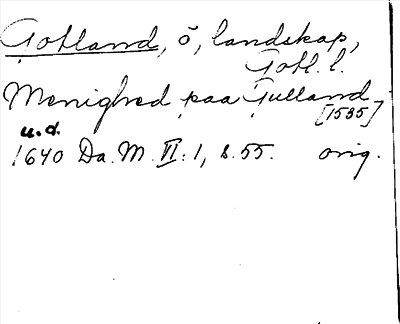 Gotland, ö, landskap,
Gotl. l.
Menighed paa Gulland
[1535]
u.d.
1640 Da. M. VI: 1, s. 55. orig.